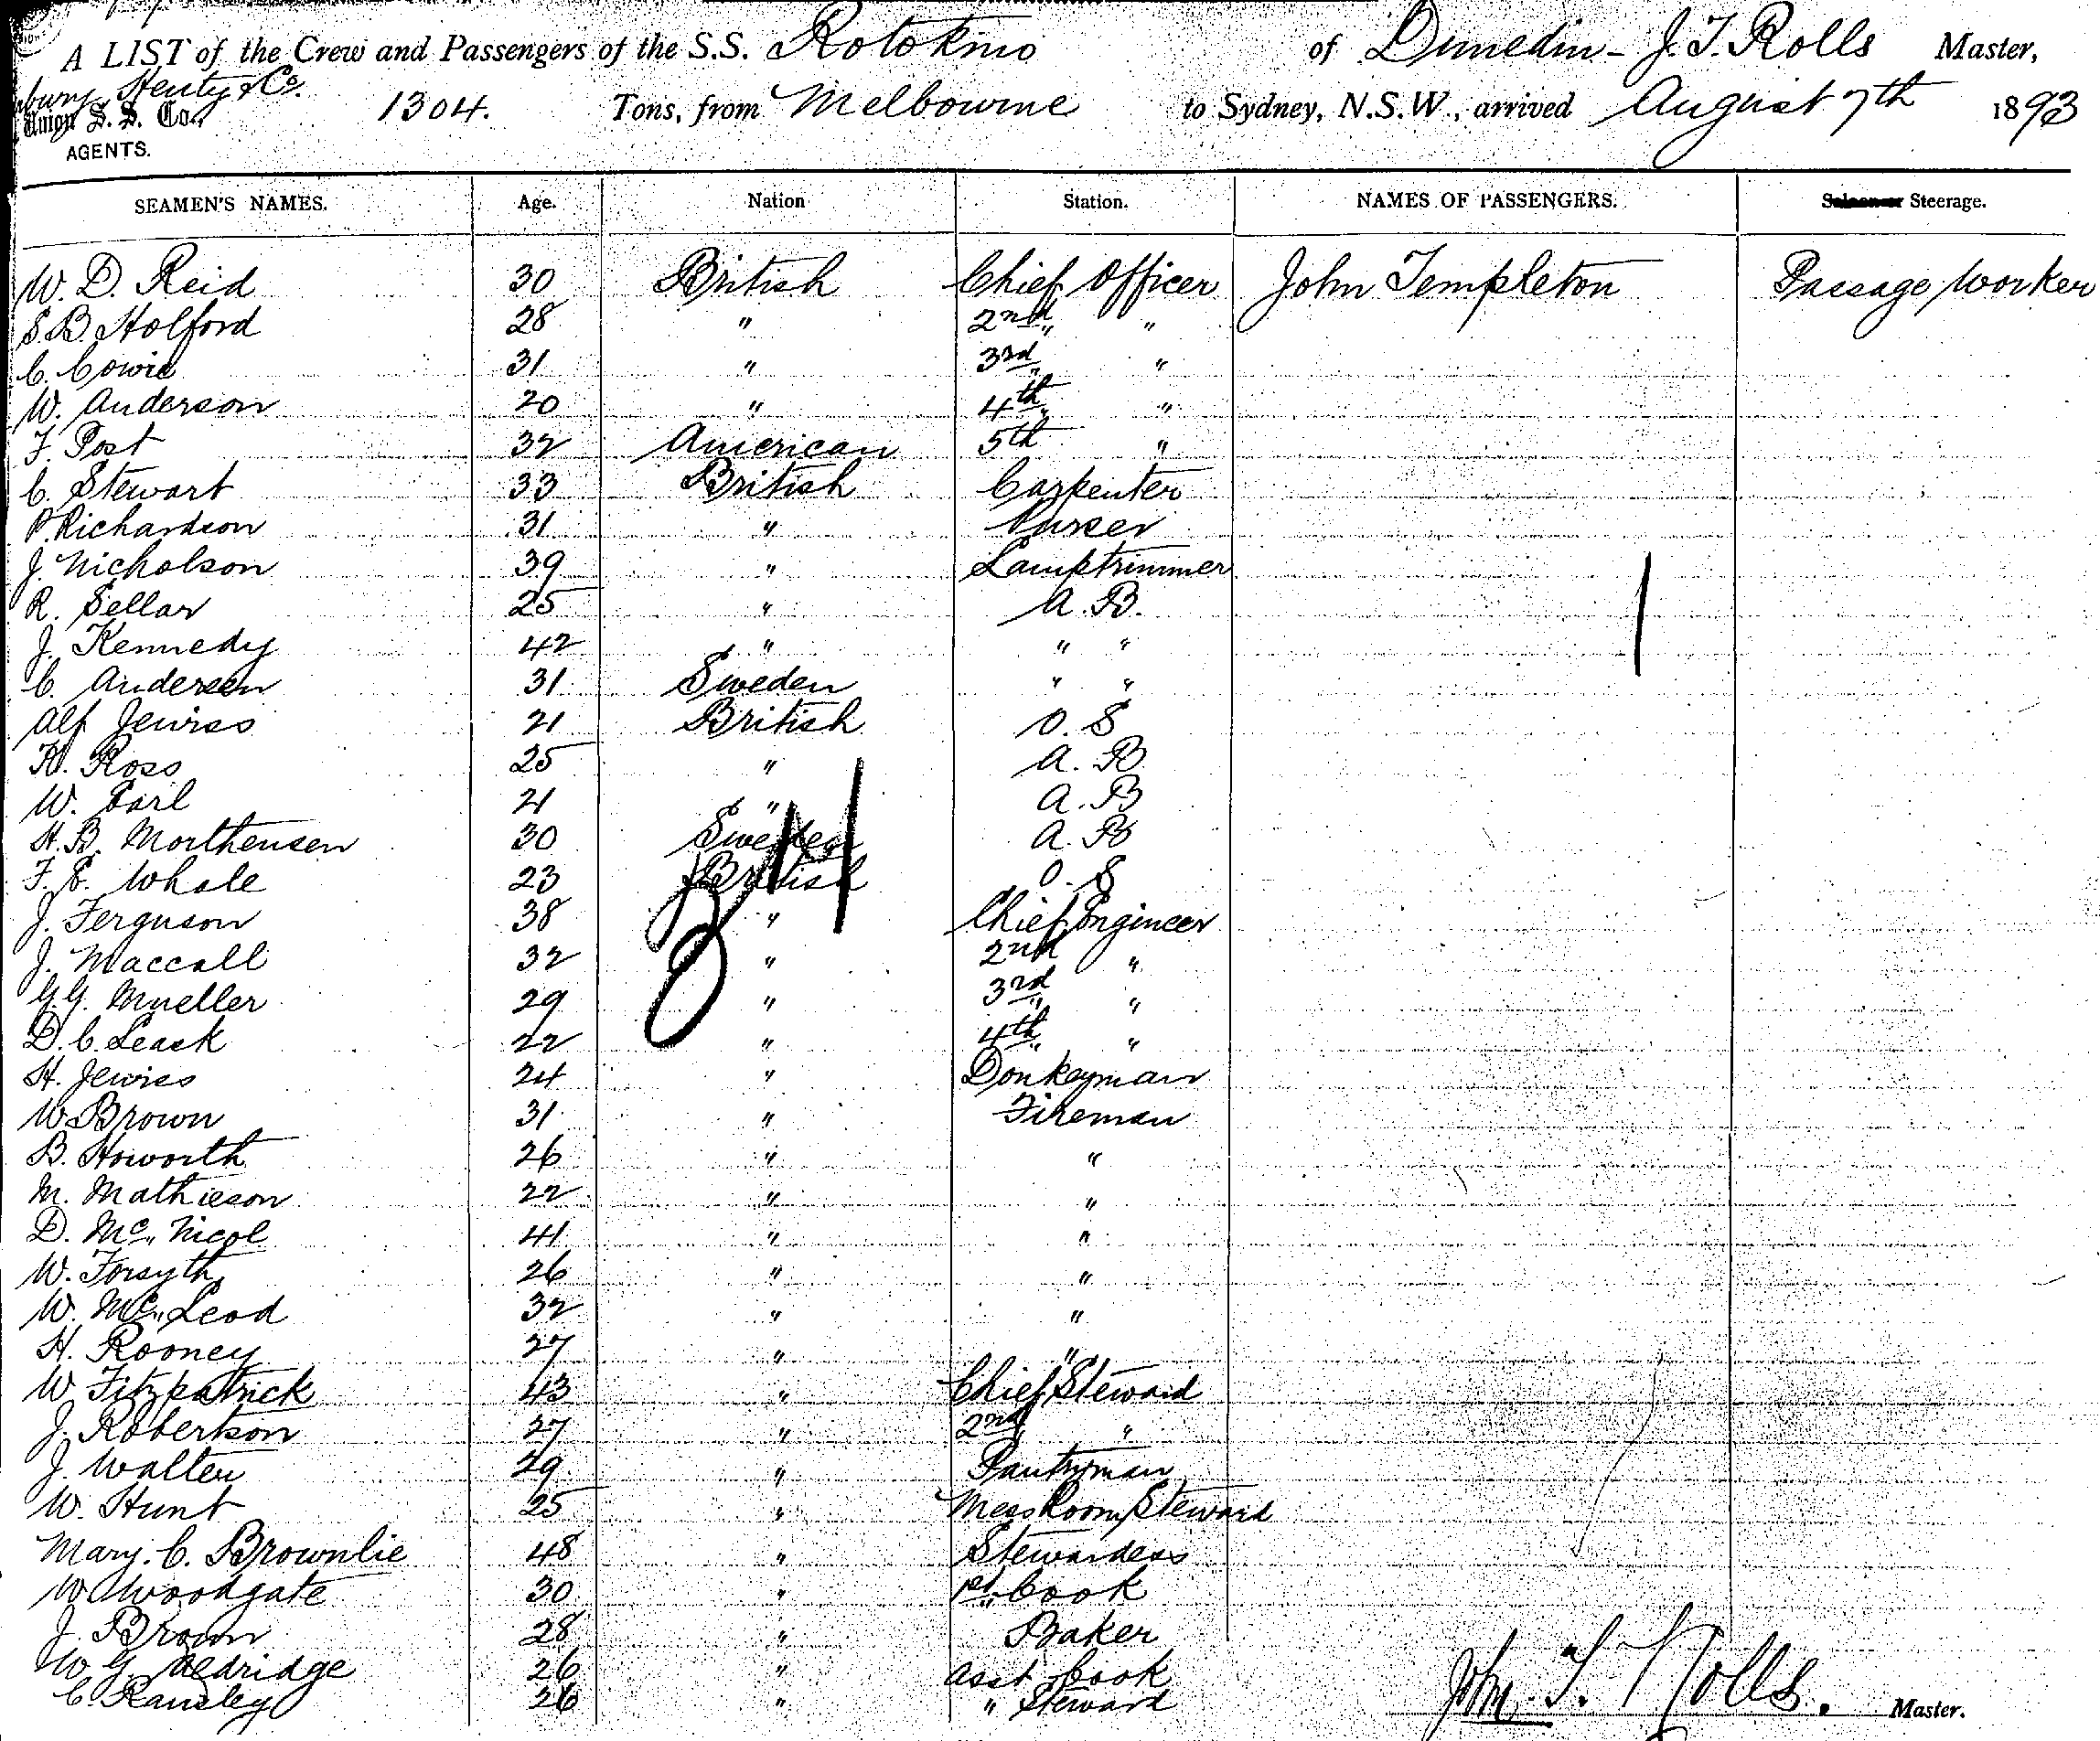 A LIST of the Crew and Passengers of the S.S. Rotokino of Dunedin - J. T. Rolls Master,
Henty & Co.
Union S. S. Co. 1304. Tons, from Melbourne to Sydney, N.S.W., arrived August 7th 1893
AGENTS.
SEAMEN'S NAMES. Age. Nation Station. NAMES OF PASSENGERS. Saloon or Steerage.
W. D. Reid 30 British Chief Officer John Templeton Passage Worker
S. B. Holford 28 " 2nd " "
C. Cowie 31 " 3rd " "
W. Anderson 20 " 4th " "
F. Post 32 American 5th "
C. Stewart 33 British Carpenter
P. Richardson 31 " Purser
J. Nicholson 39 " Lamptrimmer
R. Sellar 25 " A. B.
J. Kennedy 42 " " "
C. Andersen 31 Sweden " "
Alf Jewiss 21 British O. S
H. Ross 25 " A. B
W. Earl 21 " A. B
H. B. Morthensen 30 Sweden A. B
F. E. Whale 23 British O. S
J. Ferguson 38 " Chief Engineer
J. Maccall 32 " 2nd "
G. G. Mueller 29 " 3rd " "
D. C. Leask 22 " 4th " "
H. Jewiss 24 " Donkeyman
W Brown 31 " Fireman
B. Howorth 26 " "
M. Mathieson 22 " "
D. Mc Nicol 41 " "
W. Forsyth 26 " "
W. Mc Leod 32 " "
H. Rooney 27 " "
W Fitzpatrick 43 " Chief Steward
J. Robertson 27 " 2nd "
J. Walter 29 " Pantryman
W. Hunt 25 " Mess Room Steward
Mary. C. Brownlie 48 " Stewardess
W Woodgate 30 " 1st Cook
J Brown 28 " Baker
W G. Aldridge 26 " Asst Cook
C Ransley 26 " " Steward
John T. Rolls. Master.